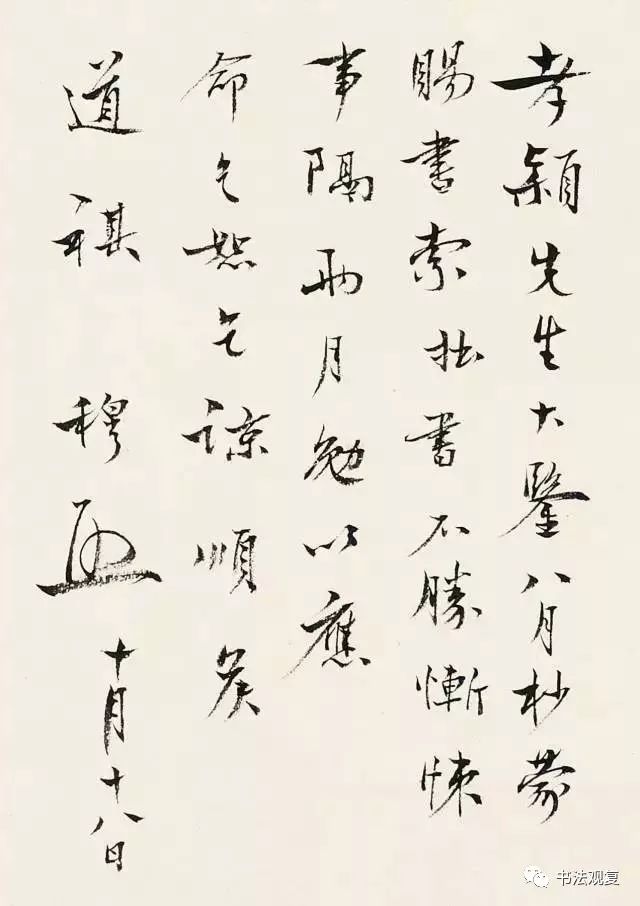 孝穎先生大鑒八月杪蒙
賜書索拙書不勝慚悚
事隔兩月勉以應
命乞恕乞諒順矦
道祺 穆 十月十八日
书法观复